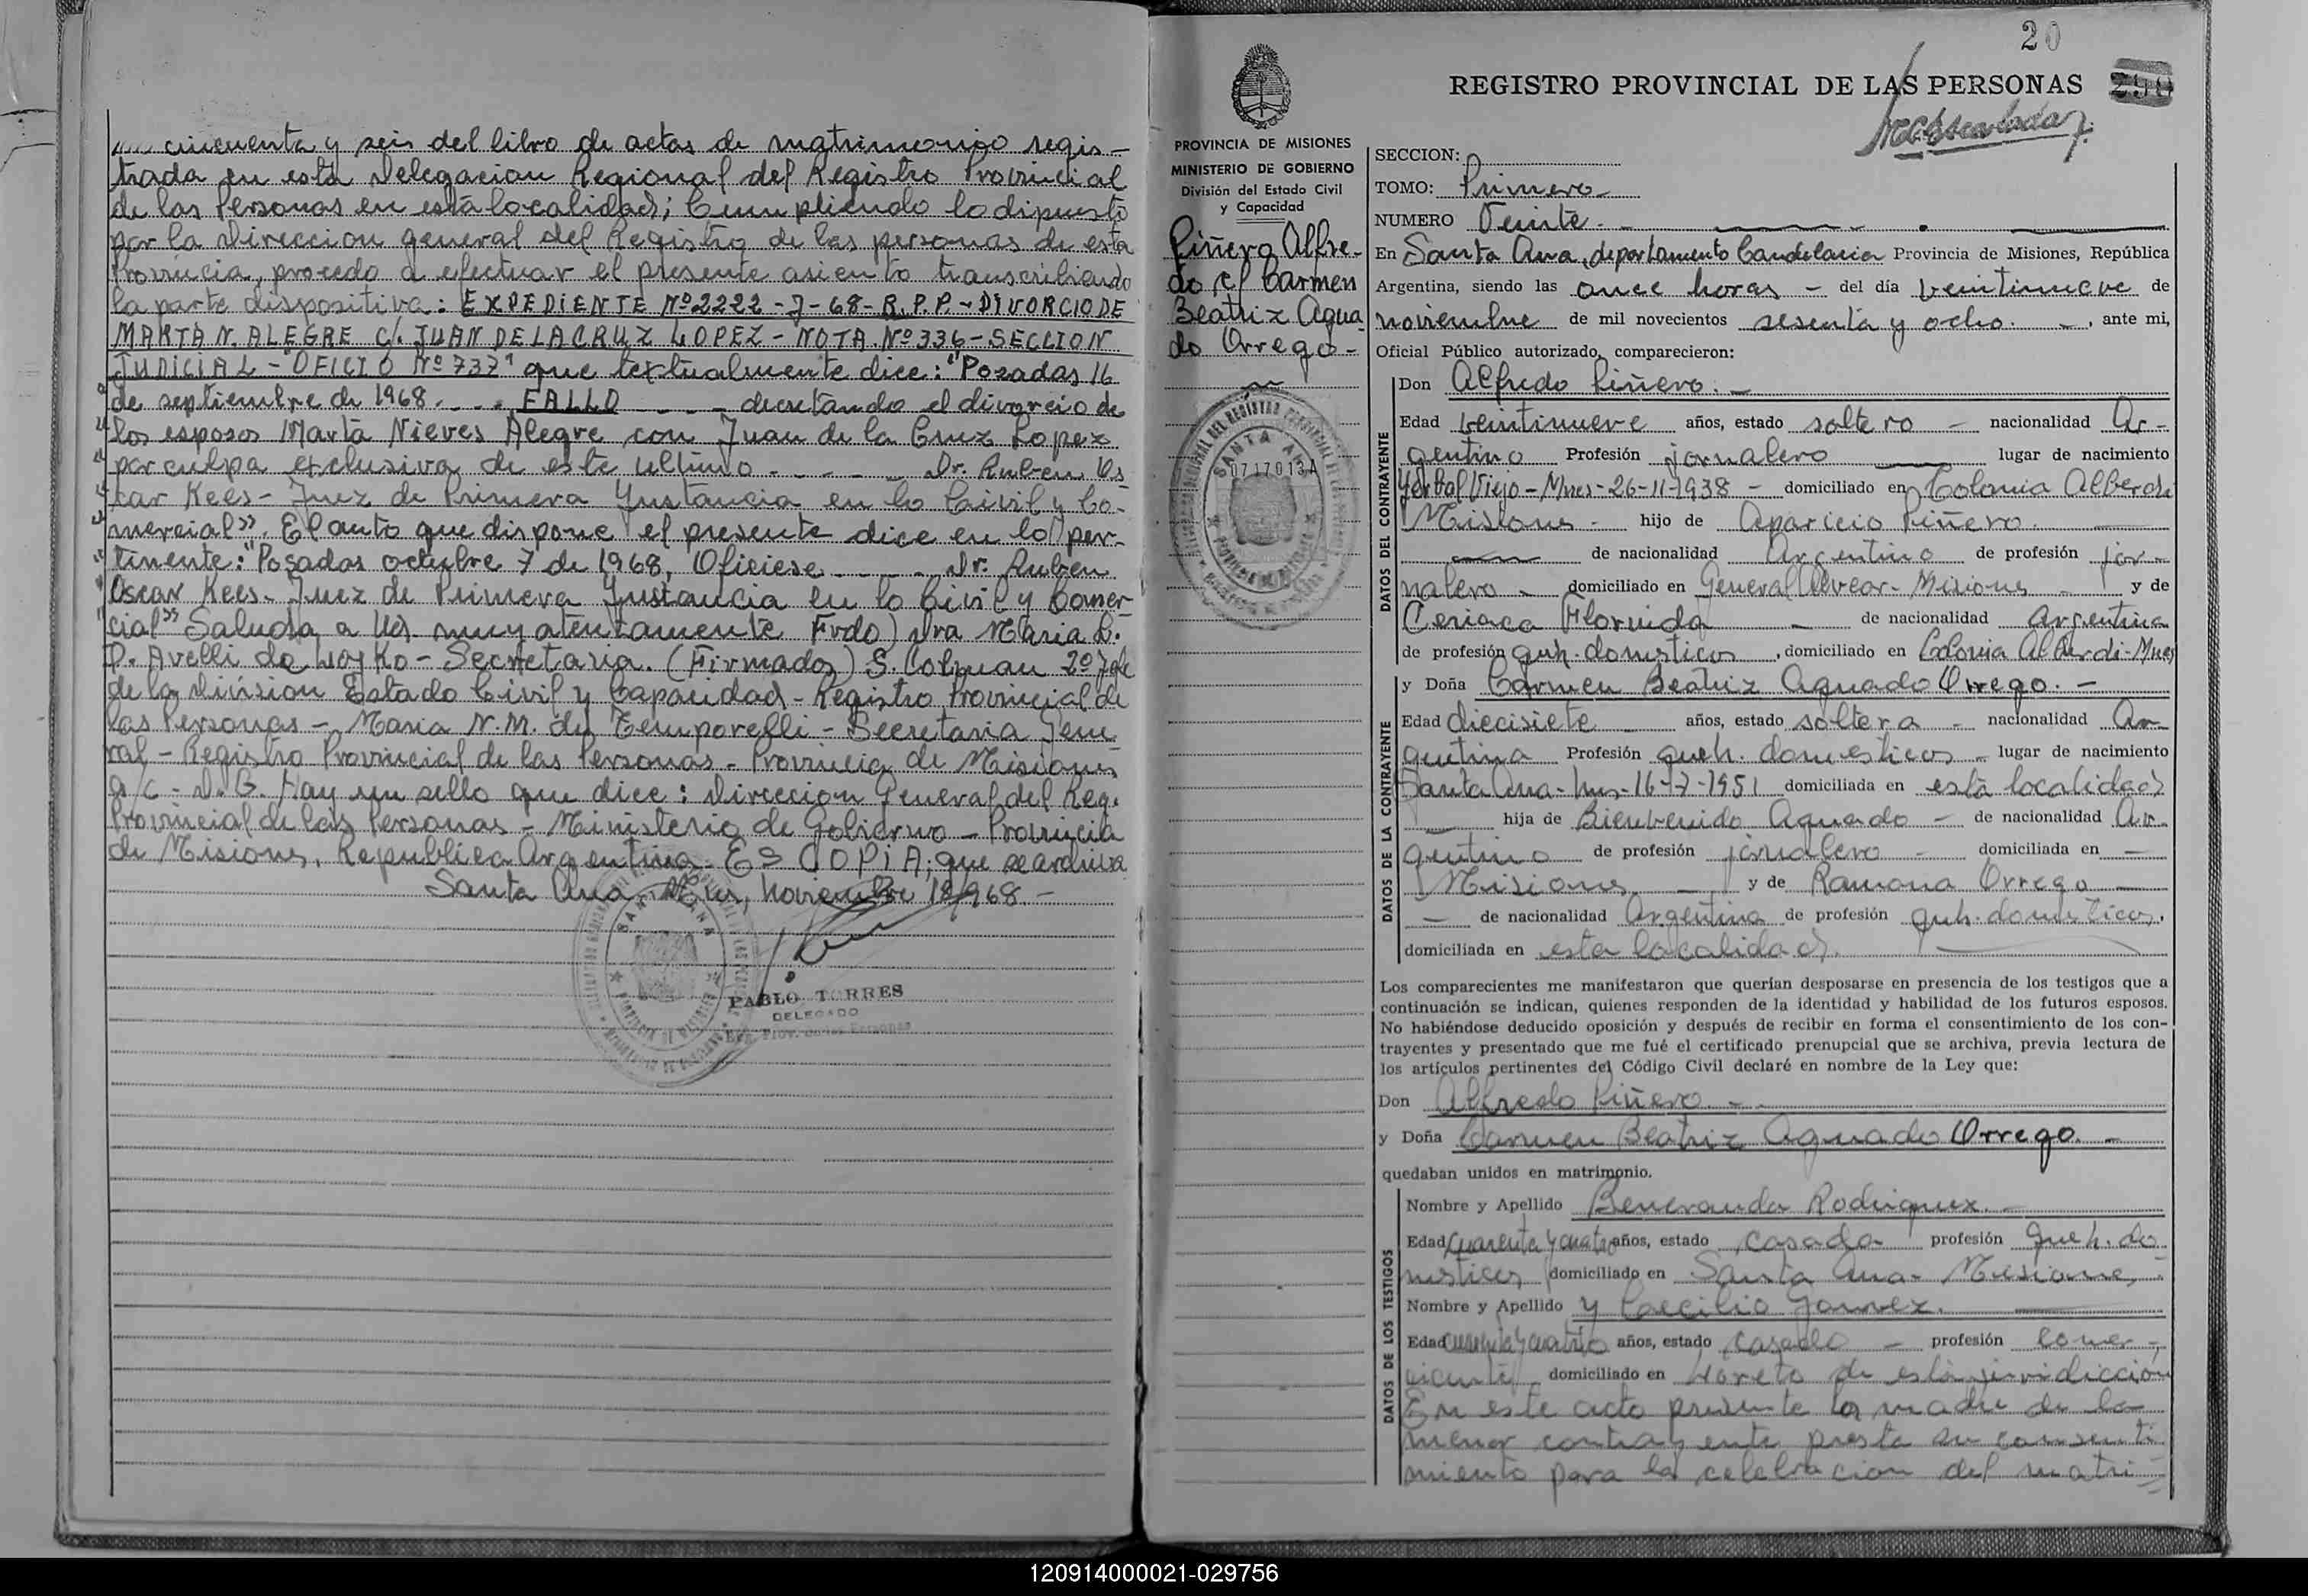 cincuenta y seis del libro de actas de matrimonio regis-
trada en esta Delegacion Regional del Registro Provincial
de las Personas en esta localidad; Cumpliendo lo dipuesto
por la Direccion general del Registro de las personas de esta
Provincia, procedo a efectuar el presente asiento transcribiendo
la parte dispositiva: EXPEDIENTE Nº 2222-J-68-R.P.P-DIVORCIO DE
MARTA N. ALEGRE C/. JUAN DE LA CRUZ LOPEZ - NOTA Nº 336 - SECCION
JUDICIAL - OFICIO Nº 737" que textualmente dice: "Posadas 16
de septiembre de 1968. - - . FALLO - - - decretando el divorcio de
los esposos Marta Nieves Alegre con Juan de la Cruz Lopez
por culpa exclusiva de este ultimo - - - - Dr. Ruben Os
car Kees - Juez de Primera Instancia en lo Civil y Co-
mercial". El auto que dispone el presente dice en lo per-
tinente: "Posadas octubre 7 de 1968, Oficiese - - - Dr. Ruben
Oscar Kees - Juez de Primera Instancia en lo Civil y Comer-
cial" Saluda a Ud. muy atentamente Fvdo) Dra Maria L.
D. Avelli de - Secretaria. (Firmados) S.
de la Division Estado Civil y Capacidad - Registro Provincial de
las Personas - Maria N. M. de Temporelli - Secretaria Gene
ral - Registro Provincial de las Personas - Provincia de Misiones
a/c - D. G. Hay un sello que dice: Direccion General del Reg.
Provincial de las Personas - Ministerio de Gobierno - Provincia
de Misiones, Republica Argentina - ES COPIA; que se archiva
Santa Ana, Mnes, Noviembre 18/968 -
PABLO TORRES
DELEGADO
Reg. Prov. de las Personas
20
REGISTRO PROVINCIAL DE LAS PERSONAS
PROVINCIA DE MISIONES
MINISTERIO DE GOBIERNO
División del Estado Civil
y Capacidad
Piñero Alfre-
do c/ Carmen
Beatriz Agua
do Orrego -
SANTA ANA
0717013A
SECCION:
TOMO: Primero
NUMERO Veinte.
En Santa Ana, departamento Candelaria Provincia de Misiones, República
Argentina, siendo las once horas - del día veintinueve de
noviembre de mil novecientos sesenta y ocho. -, ante mi,
Oficial Público autorizado, comparecieron:
DATOS DEL CONTRAYENTE
Don Alfredo Piñero. -
Edad veintinueve años, estado soltero - nacionalidad Ar-
gentino Profesión jornalero lugar de nacimiento
Yerbal Viejo - Mnes - 26-11-1938 - domiciliado en Colonia Alberdi
Misiones - hijo de Aparicio Piñero.
de nacionalidad Argentino de profesión jor-
nalero - domiciliado en General Alvear - Misiones - y de
Ceriaca Florinda - de nacionalidad argentina
de profesión queh. domesticos, domiciliado en Colonia Alberdi - Mnes
DATOS DE LA CONTRAYENTE
y Doña Carmen Beatriz Aguado Orrego. -
Edad diecisiete años, estado soltera - nacionalidad Ar-
gentina Profesión queh. domesticos - lugar de nacimiento
Santa Ana - Mns - 16-7-1951 domiciliada en esta localidad
hija de Bienvenido Aguado - de nacionalidad Ar-
gentino de profesión jornalero - domiciliada en -
Misiones - y de Ramona Orrego -
- de nacionalidad Argentina de profesión queh. domesticos,
domiciliada en esta localidad.
Los comparecientes me manifestaron que querían desposarse en presencia de los testigos que a
continuación se indican, quienes responden de la identidad y habilidad de los futuros esposos.
No habiéndose deducido oposición y después de recibir en forma el consentimiento de los con-
trayentes y presentado que me fué el certificado prenupcial que se archiva, previa lectura de
los artículos pertinentes del Código Civil declaré en nombre de la Ley que:
Don Alfredo Piñero. -
y Doña Carmen Beatriz Aguado Orrego. -
quedaban unidos en matrimonio.
DATOS DE LOS TESTIGOS
Nombre y Apellido Beneranda Rodriguez. -
Edad cuarenta y cuatro años, estado casada profesión queh. do-
mesticos domiciliado en Santa Ana - Misiones,
Nombre y Apellido y Caecilio Gomez.
Edad cuarenta y cuatro años, estado casado - profesión comer-
ciante domiciliado en Loreto de esta juridiccion
En este acto presente la madre de la
menor contrayente presta su consenti
miento para la celebracion del matri=
120914000021-029756